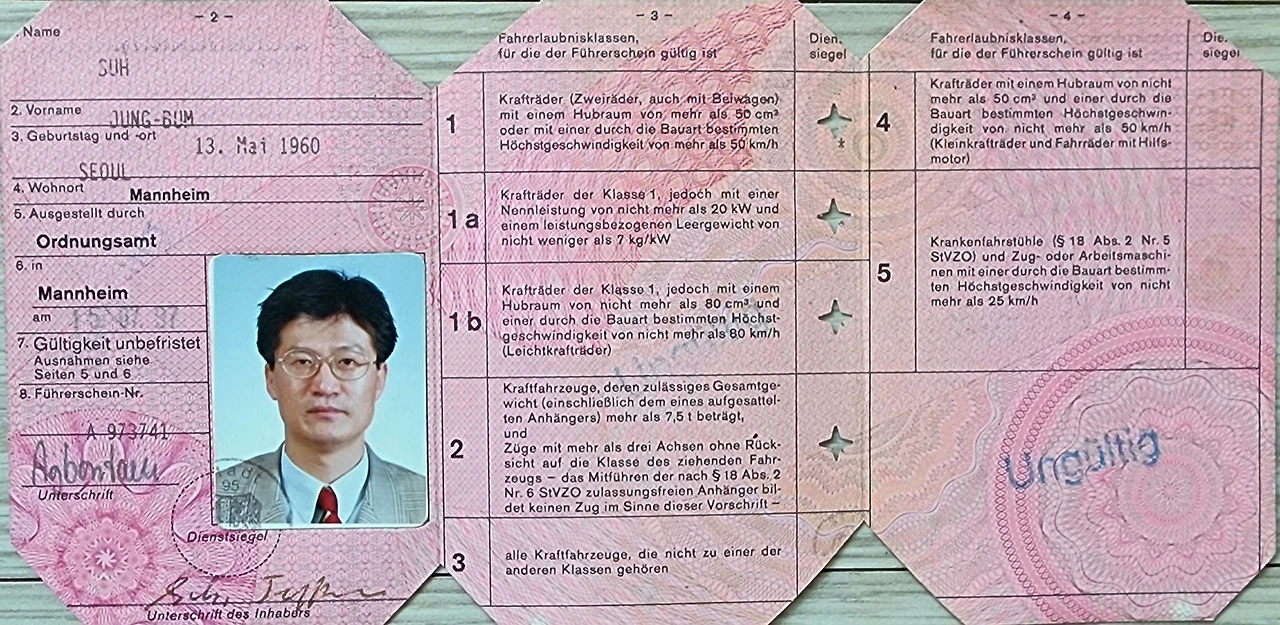 - 2 -
. Name
SUH
2. Vorname
JUNG-BUM
3. Geburtstag und -ort
13. Mai 1960
SEOUL
4. Wohnort
Mannheim
5. Ausgestellt durch
Ordnungsamt
6. in
Mannheim
am
7. Gültigkeit unbefristet
Ausnahmen siehe
Seiten 5 und 6
8. Führerschein-Nr.
A 973741
Unterschrift
95
Dienstsiegel
Unterschrift des Inhabers
- 3 -
Fahrerlaubnisklassen,
für die der Führerschein gültig ist
Dien.
siegel
1
Krafträder (Zweiräder, auch mit Beiwagen)
mit einem Hubraum von mehr als 50 cm³
oder mit einer durch die Bauart bestimmten
Höchstgeschwindigkeit von mehr als 50 km/h
*
1a
Krafträder der Klasse 1, jedoch mit einer
Nennleistung von nicht mehr als 20 kW und
einem leistungsbezogenen Leergewicht von
nicht weniger als 7 kg/kW
1b
Krafträder der Klasse 1, jedoch mit einem
Hubraum von nicht mehr als 80 cm³ und
einer durch die Bauart bestimmten Höchst-
geschwindigkeit von nicht mehr als 80 km/h
(Leichtkrafträder)
2
Kraftfahrzeuge, deren zulässiges Gesamtge-
wicht (einschließlich dem eines aufgesattel-
ten Anhängers) mehr als 7,5 t beträgt,
und
Züge mit mehr als drei Achsen ohne Rück-
sicht auf die Klasse des ziehenden Fahr-
zeugs – das Mitführen der nach § 18 Abs. 2
Nr. 6 StVZO zulassungsfreien Anhänger bil-
det keinen Zug im Sinne dieser Vorschrift –
3
alle Kraftfahrzeuge, die nicht zu einer der
anderen Klassen gehören
- 4 -
Fahrerlaubnisklassen,
für die der Führerschein gültig ist
Die.
siegel
4
Krafträder mit einem Hubraum von nicht
mehr als 50 cm³ und einer durch die
Bauart bestimmten Höchstgeschwin-
digkeit von nicht mehr als 50 km/h
(Kleinkrafträder und Fahrräder mit Hilfs-
motor)
5
Krankenfahrstühle (§ 18 Abs. 2 Nr. 5
StVZO) und Zug- oder Arbeitsmaschi-
nen mit einer durch die Bauart bestimm-
ten Höchstgeschwindigkeit von nicht
mehr als 25 km/h
Ungültig